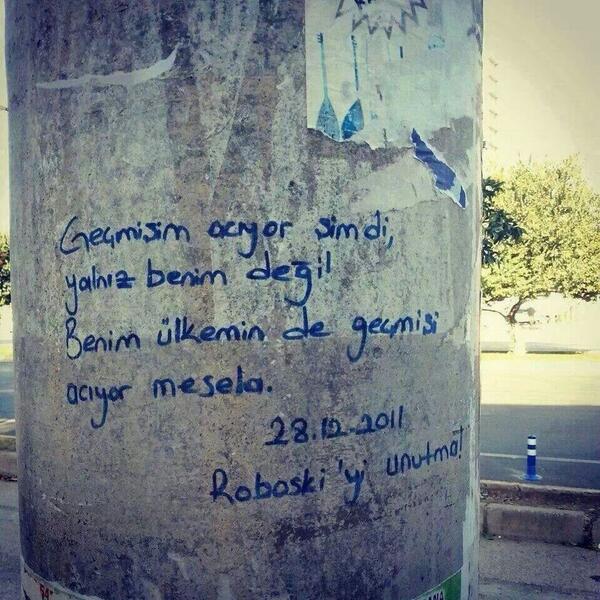 Geçmişim acıyor şimdi,
yalnız benim değil
Benim ülkemin de geçmişi
acıyor mesela.
28.12.2011
Roboski'yi unutma!